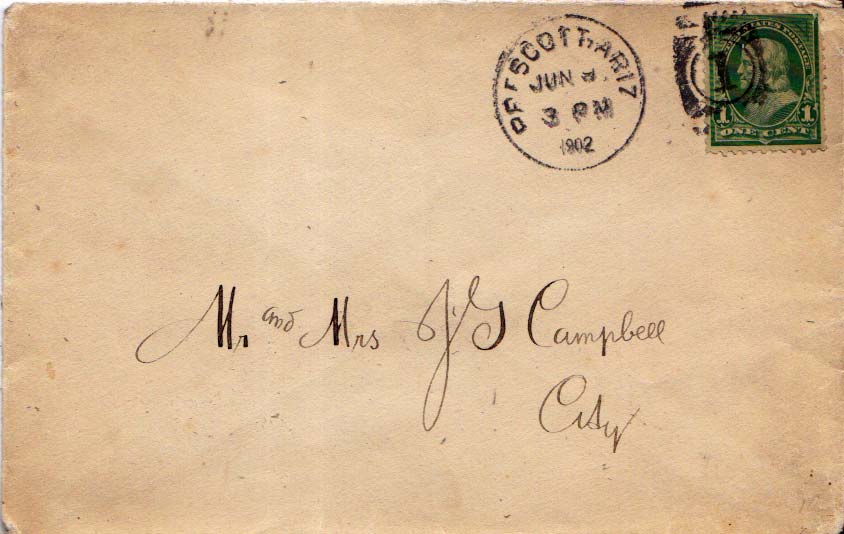 PRESCOTT, ARIZ
JUN
3 PM
1902
1
UNITED STATES POSTAGE
1 1
ONE CENT
Mr and Mrs J G Campbell
City